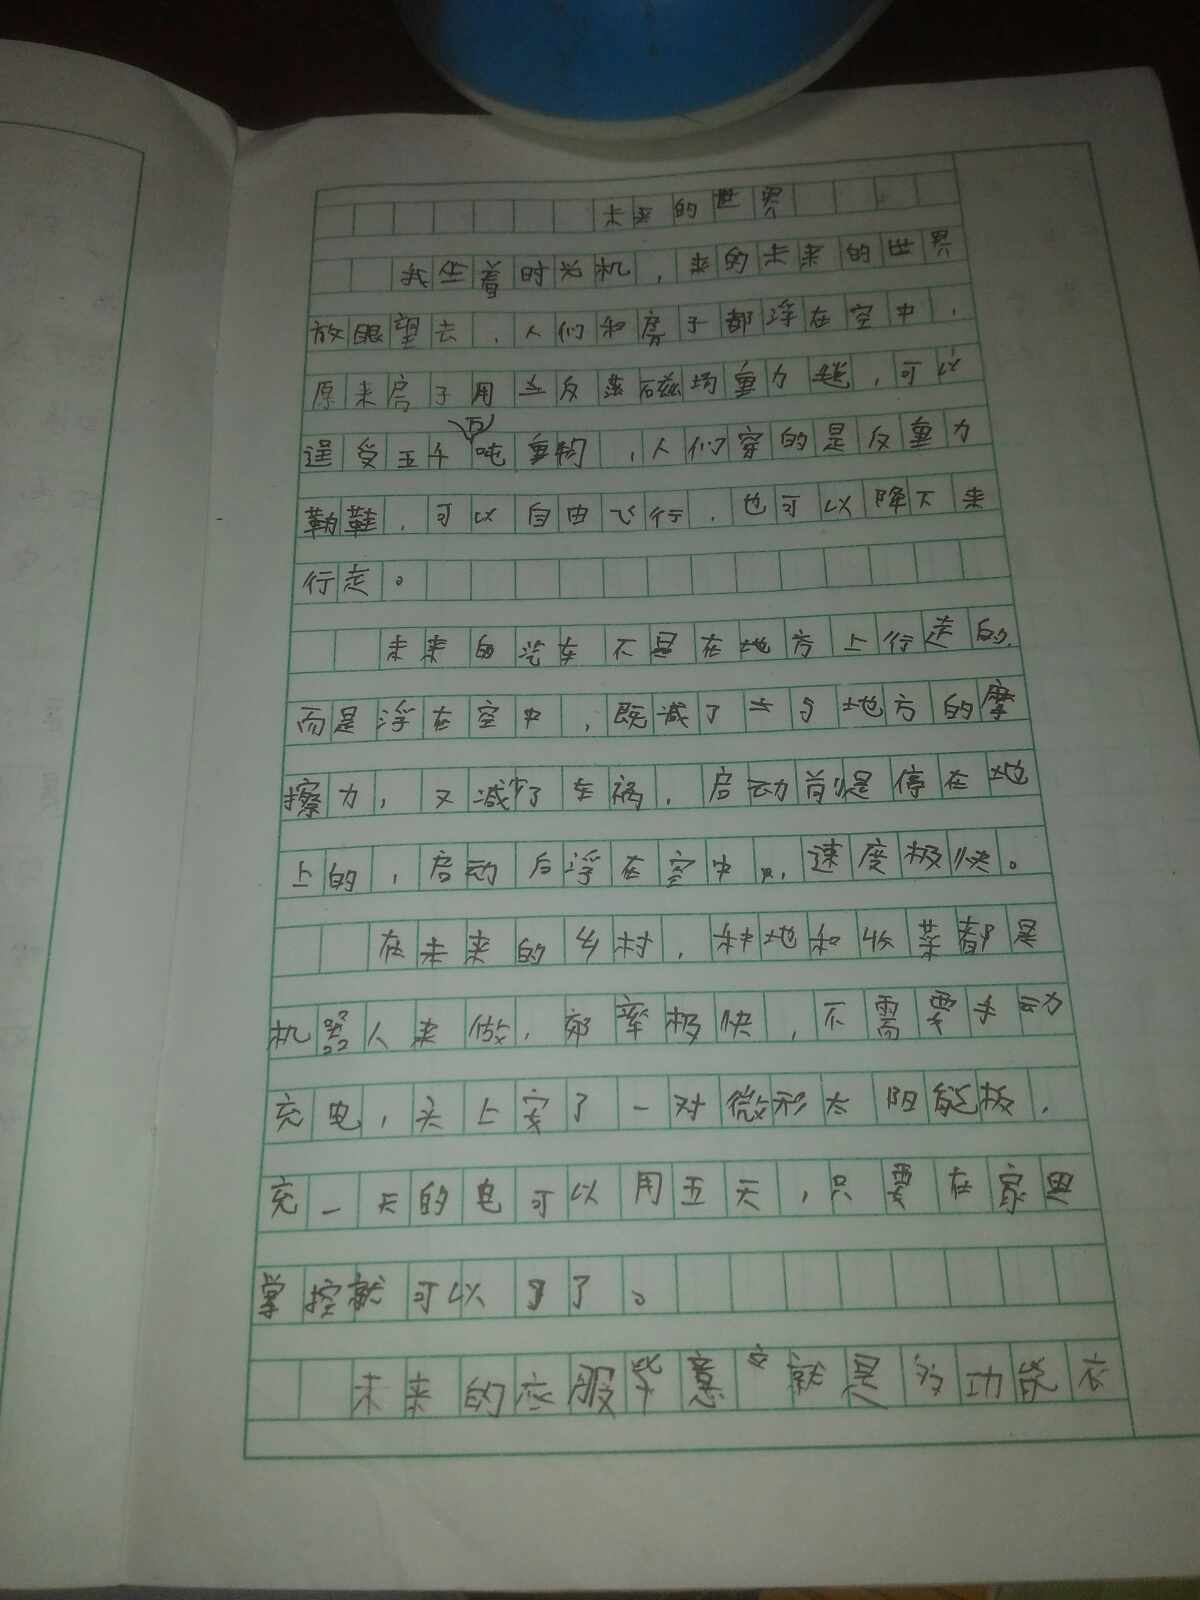 未来的世界
我坐着时光机，来的未来的世界
放眼望去，人们和房子都浮在空中，
原来房子用反磁场重力，可以
受五千万吨重物，人们穿的是反重力
鞋，可以自由飞行，也可以降下来
行走。
未来的汽车不是在地方上行走的，
而是浮在空中，既减了与地方的摩
擦力，又减少了车祸，启动前是停在地
上的，启动后浮在空中，速度极快。
在未来的乡村，种地和收菜都是
机器人来做，效率极快，不需要手动
充电，头上安了一对微形太阳能板，
充一天的电可以用五天，只要在家里
掌控就可以了。
未来的衣服华意就是多功能衣